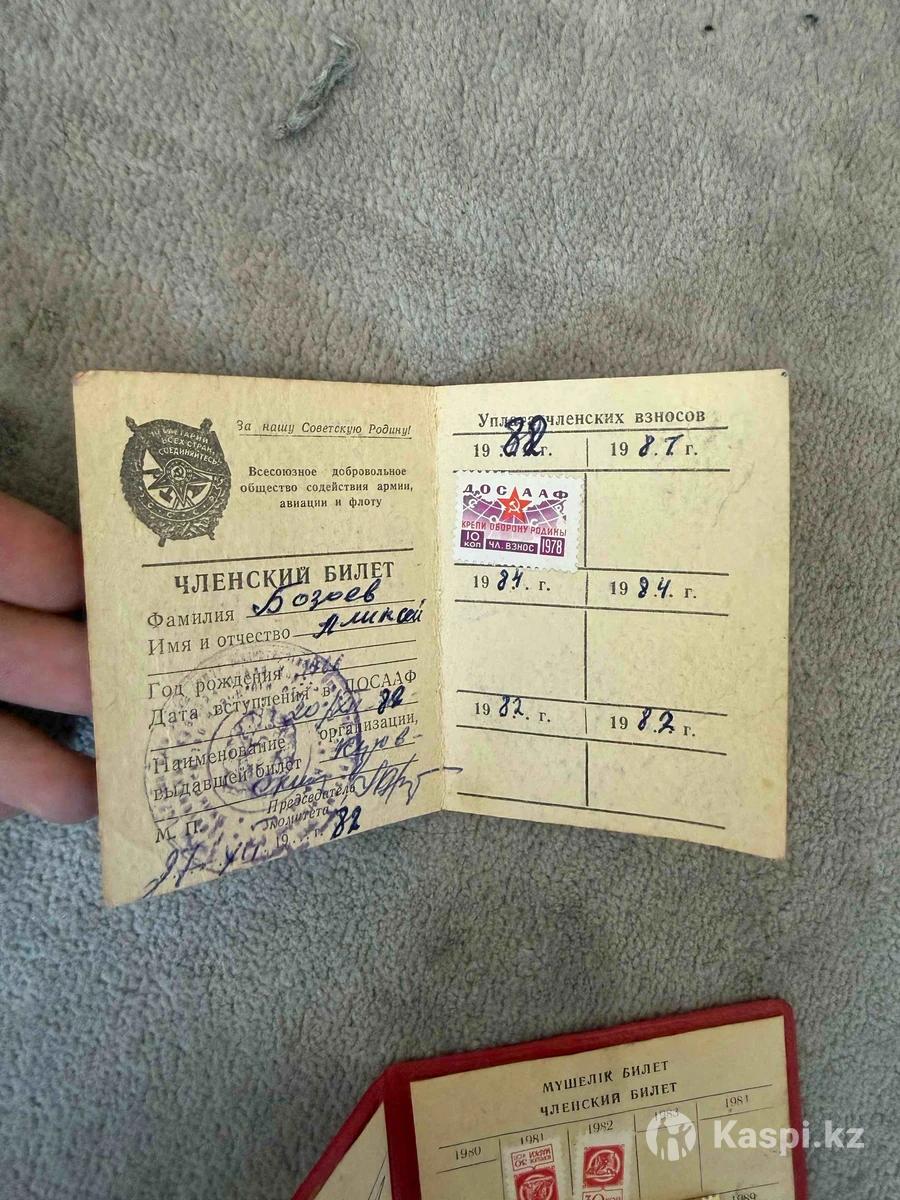 ПРОЛЕТАРИИ
ВСЕХ СТРАН,
СОЕДИНЯЙТЕСЬ!
СССР
За нашу Советскую Родину!
Всесоюзное добровольное
общество содействия армии,
авиации и флоту
ЧЛЕНСКИЙ БИЛЕТ
Фамилия Бозоев
Имя и отчество Аликсей
Год рождения
Дата вступления в ДОСААФ
20 82
Наименование организации,
выдавшей билет
М. П. Председатель
комитета
19 г. 82
Уплата членских взносов
19 82 г. 19 8.7. г.
ДОСААФ
КРЕПИ ОБОРОНУ РОДИНЫ
10 КОП ЧЛ. ВЗНОС 1978
19 84. г. 19 8.4. г.
19 82. г. 19 8.2. г.
МҮШЕЛІК БИЛЕТ
ЧЛЕНСКИЙ БИЛЕТ
1980 1981 1982 1983 1984
30 КОП
30 КОП
1989
Kaspi.kz